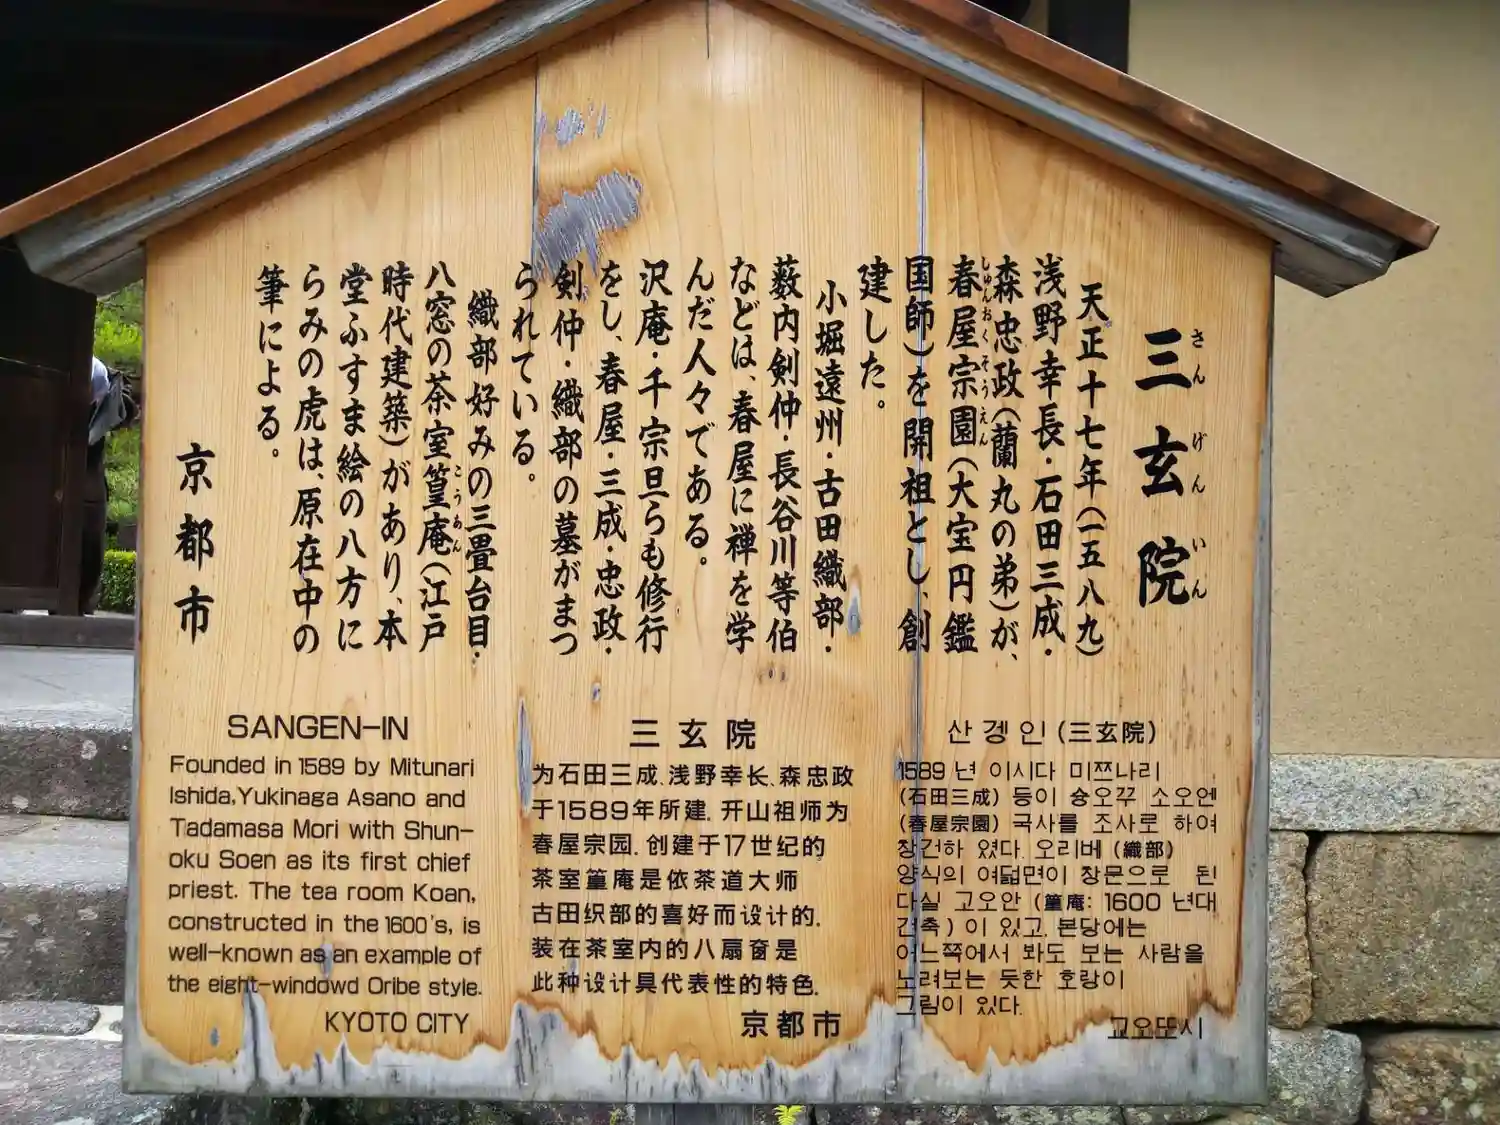 三玄院
さんげんいん
天正十七年(一五八九)
浅野幸長・石田三成・
森忠政(蘭丸の弟)が、
春屋宗園(大宝円鑑
しゅんおくそうえん
国師)を開祖とし、創
建した。
小堀遠州・古田織部・
薮内剣仲・長谷川等伯
などは、春屋に禅を学
んだ人々である。
沢庵・千宗旦らも修行
をし、春屋・三成・忠政・
剣仲・織部の墓がまつ
られている。
織部好みの三畳台目・
八窓の茶室篁庵(江戸
こうあん
時代建築)があり、本
堂ふすま絵の八方に
らみの虎は、原在中の
筆による。
京都市
SANGEN-IN
Founded in 1589 by Mitunari
Ishida,Yukinaga Asano and
Tadamasa Mori with Shun-
oku Soen as its first chief
priest. The tea room Koan,
constructed in the 1600's, is
well-known as an example of
the eight-windowd Oribe style.
KYOTO CITY
三玄院
为石田三成、浅野幸长、森忠政
于1589年所建. 开山祖师为
春屋宗园. 创建于17世纪的
茶室篁庵是依茶道大师
古田织部的喜好而设计的.
装在茶室内的八扇窗是
此种设计具代表性的特色.
京都市
산겡인(三玄院)
1589년 이시다 미쯔나리
(石田三成) 등이 슝오꾸 소오엔
(春屋宗園) 국사를 조사로 하여
창건하 였다. 오리베 (織部)
양식의 여덟면이 창문으로 된
다실 고오안 (篁庵: 1600 년대
건축) 이 있고. 본당에는
어느쪽에서 봐도 보는 사람을
노려보는 듯한 호랑이
그림이 있다.
교오또시